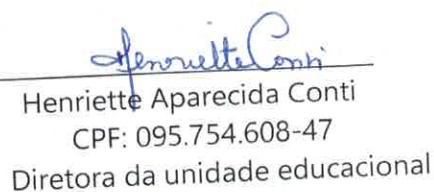 Henriette Conti
Henriette Aparecida Conti
CPF: 095.754.608-47
Diretora da unidade educacional